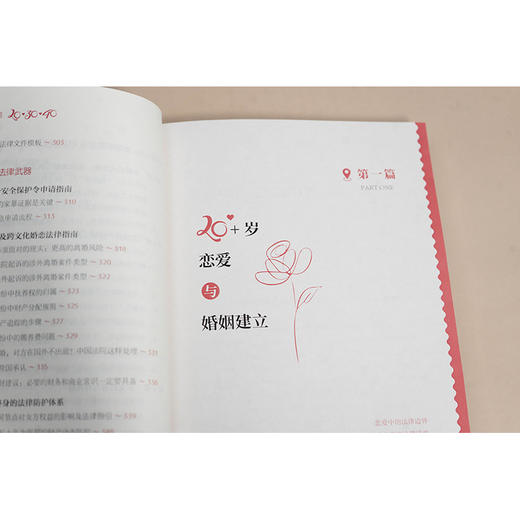 20·30·40
法律文件模板 ~ 303
法律武器
安全保护令申请指南
的家暴证据是关键 ~ 310
急申请流程 ~ 313
及跨文化婚恋法律指南
更高的离婚风险 ~ 318
院起诉的涉外离婚案件类型 ~ 320
外起诉的涉外离婚案件类型
中抚养权的归属 ~ 323
中财产分配 ~ 325
产追踪的步骤 ~ 327
中的赡养费问题 ~ 329
对方在国外不出面?中国法院这样处理 ~ 331
国承认 ~ 334
必要的财务和商业常识一定要具备 ~ 336
身的法律防护体系
第一篇
PART ONE
20+岁
恋爱
与
婚姻建立
恋爱中的法律边界